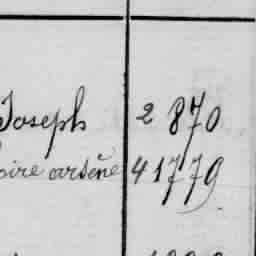 Joseph 2 870
oire arsène 41779